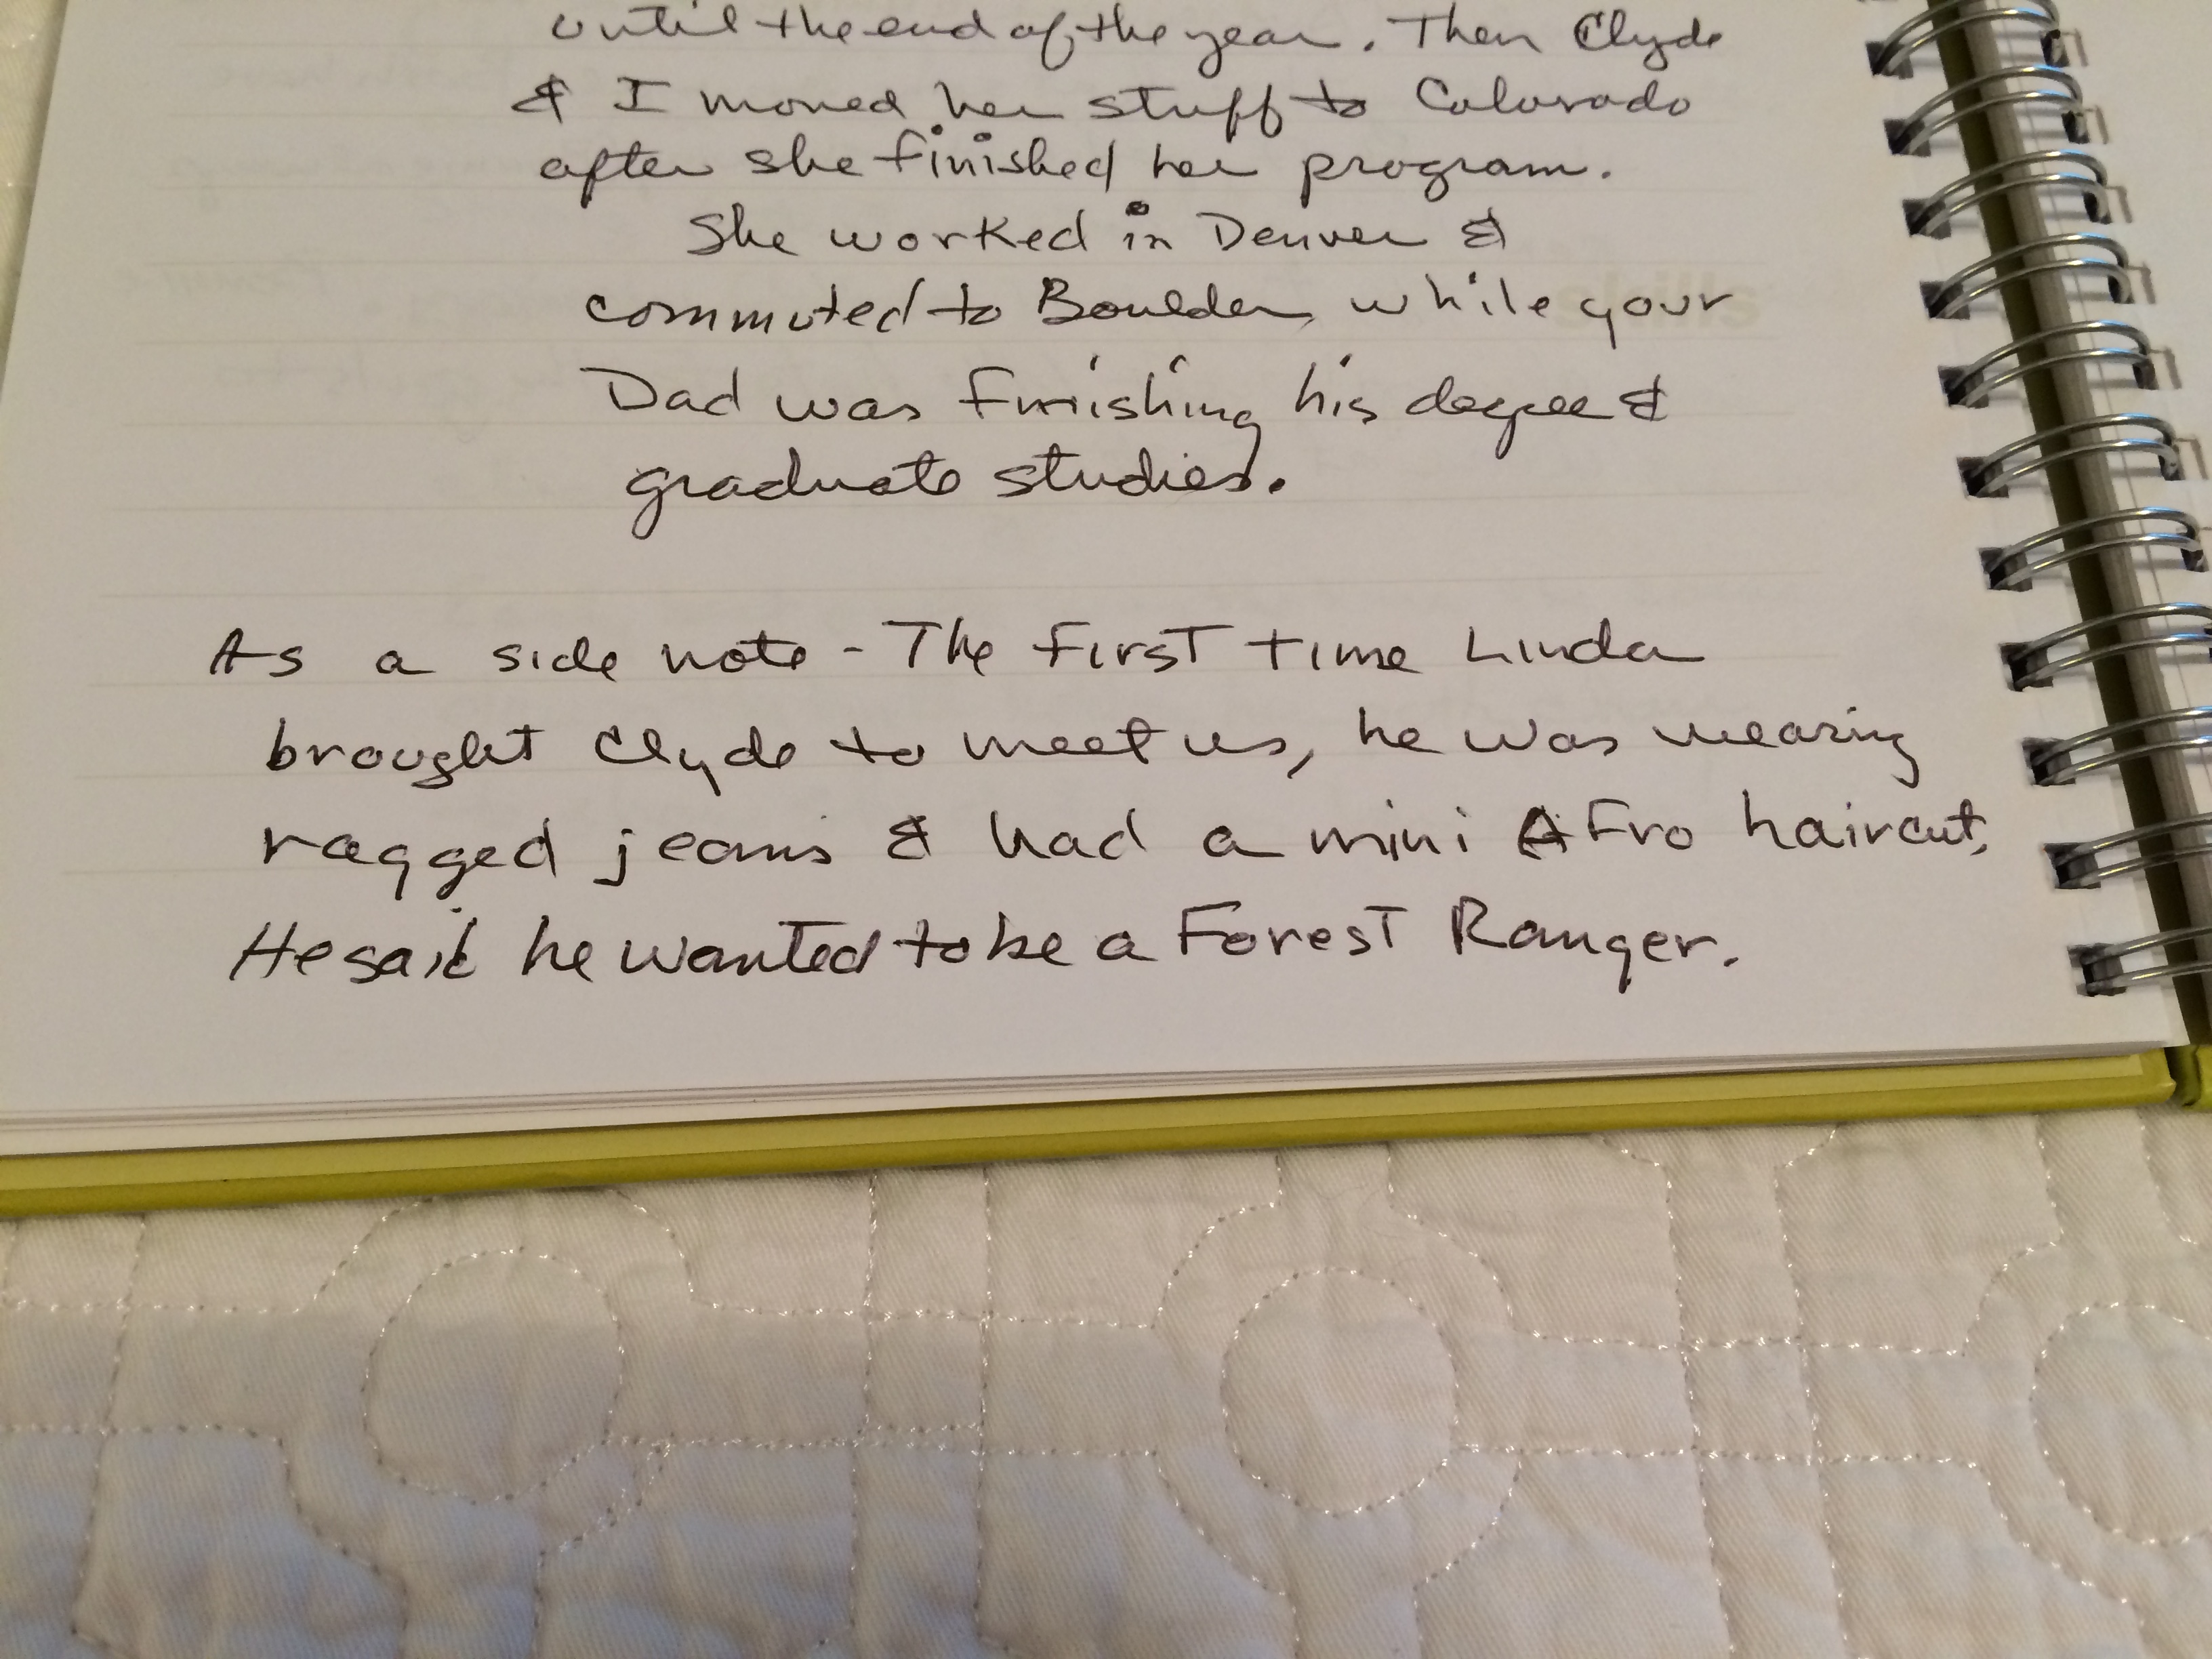 until the end of the year. Then Clyde
& I moved her stuff to Colorado
after she finished her program.
She worked in Denver &
commuted to Boulder while your
Dad was finishing his degree &
graduate studies.
As a side note - The first time Linda
brought Clyde to meet us, he was wearing
ragged jeans & had a mini Afro haircut.
He said he wanted to be a Forest Ranger.